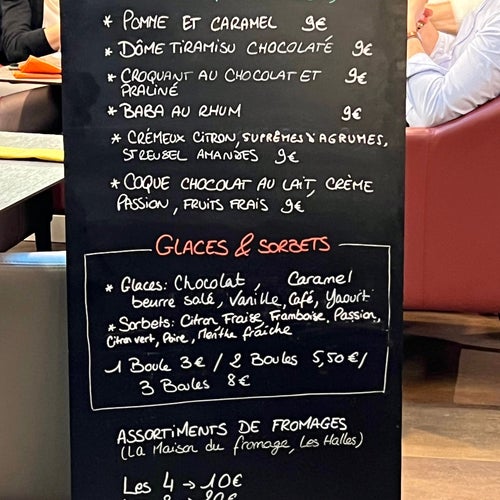 * POMME ET CARAMEL 9€
* DÔME TIRAMISU CHOCOLATÉ 9€
* CROQUANT AU CHOCOLAT ET 9€
PRALINÉ
* BABA AU RHUM 9€
* CRÉMEUX CITRON, SUPRÊMES D'AGRUMES,
STREUSEL AMANDES 9€
* COQUE CHOCOLAT AU LAIT, CRÈME
PASSION, FRUITS FRAIS 9€
GLACES & SORBETS
* Glaces: Chocolat, Caramel
beurre salé, Vanille, Café, Yaourt
* Sorbets: Citron Fraise, Framboise, Passion,
Citron vert, Poire, Menthe fraîche
1 Boule 3€ / 2 Boules 5,50€ /
3 Boules 8€
ASSORTIMENTS DE FROMAGES
(La Maison du fromage, Les Halles)
Les 4 → 10€